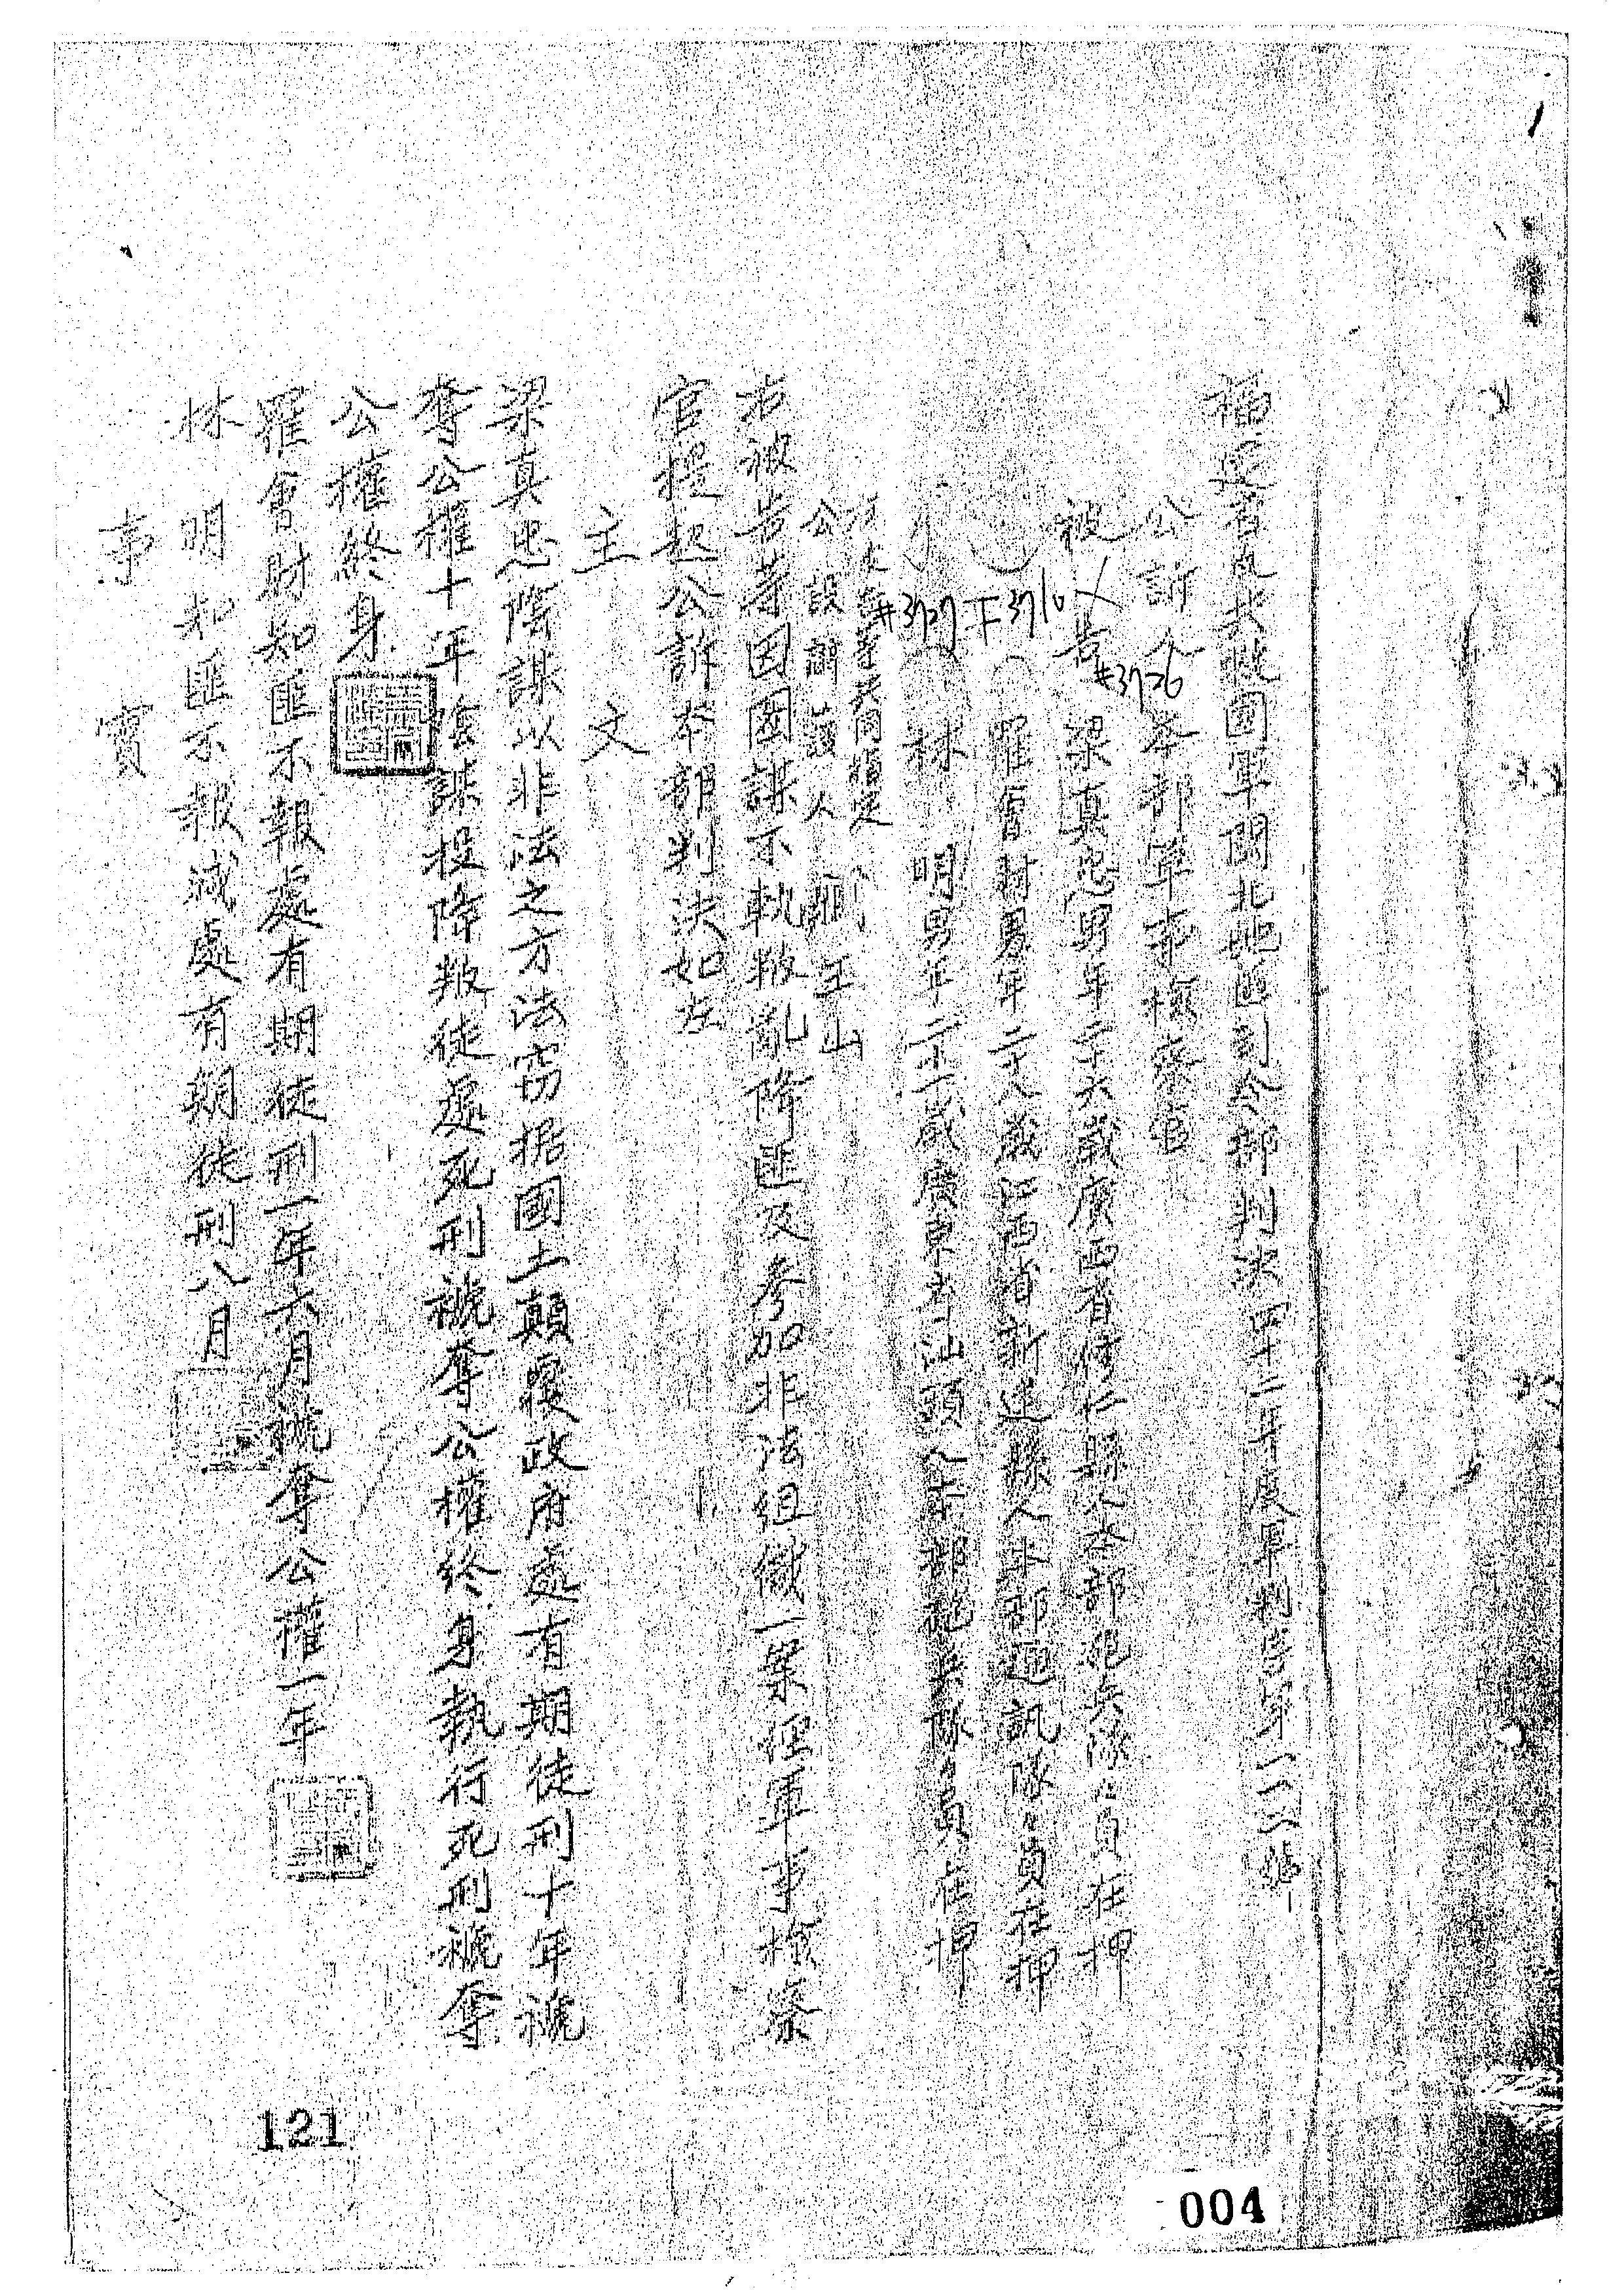 福建省反共救國軍閩北地區司令部判決四十二年度軍判字第一一一號
公訴人本部軍事檢察官
被告
#3726
梁真忠男年二十六歲廣西省修仁縣人本部砲兵隊隊員在押
#3710
羅會財男年二十八歲江西省新淦縣人本部通訊隊隊員在押
#3727
林明男年二十一歲廣東省汕頭人本部砲兵隊隊員在押
公設辯護人 王山
右被告等因圖謀不軌叛亂降匪及參加非法組織一案經軍事檢察
官提起公訴本部判決如左
主文
梁真忠陰謀以非法之方法竊据國土顛覆政府處有期徒刑十年褫
奪公權十年陰謀投降叛徒處死刑褫奪公權終身執行死刑褫奪
公權終身
羅會財知匪不報處有期徒刑一年六月褫奪公權一年
林明知匪不報減處有期徒刑八月
事實
121
004